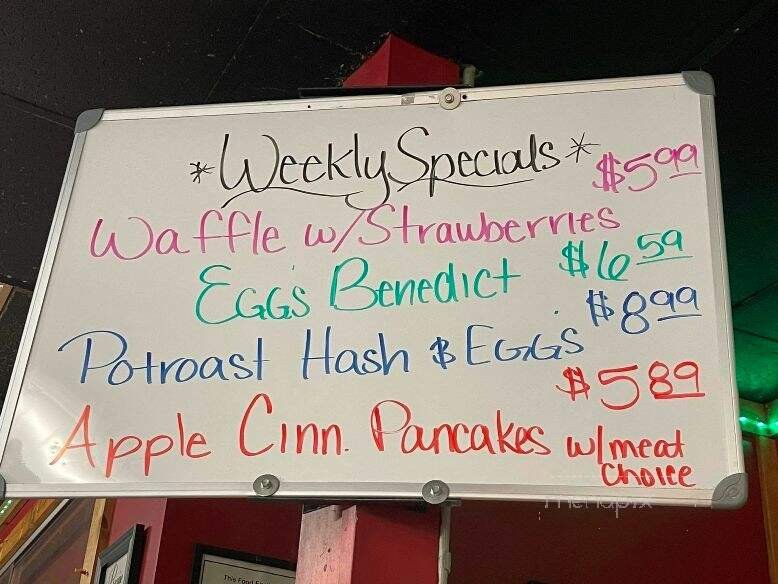 *Weekly Specials*
$5.99
Waffle w/Strawberries
Eggs Benedict $6.59
Potroast Hash & EGGS $8.99
$5.89
Apple Cinn. Pancakes w/meat
Choice
menupix
This Food